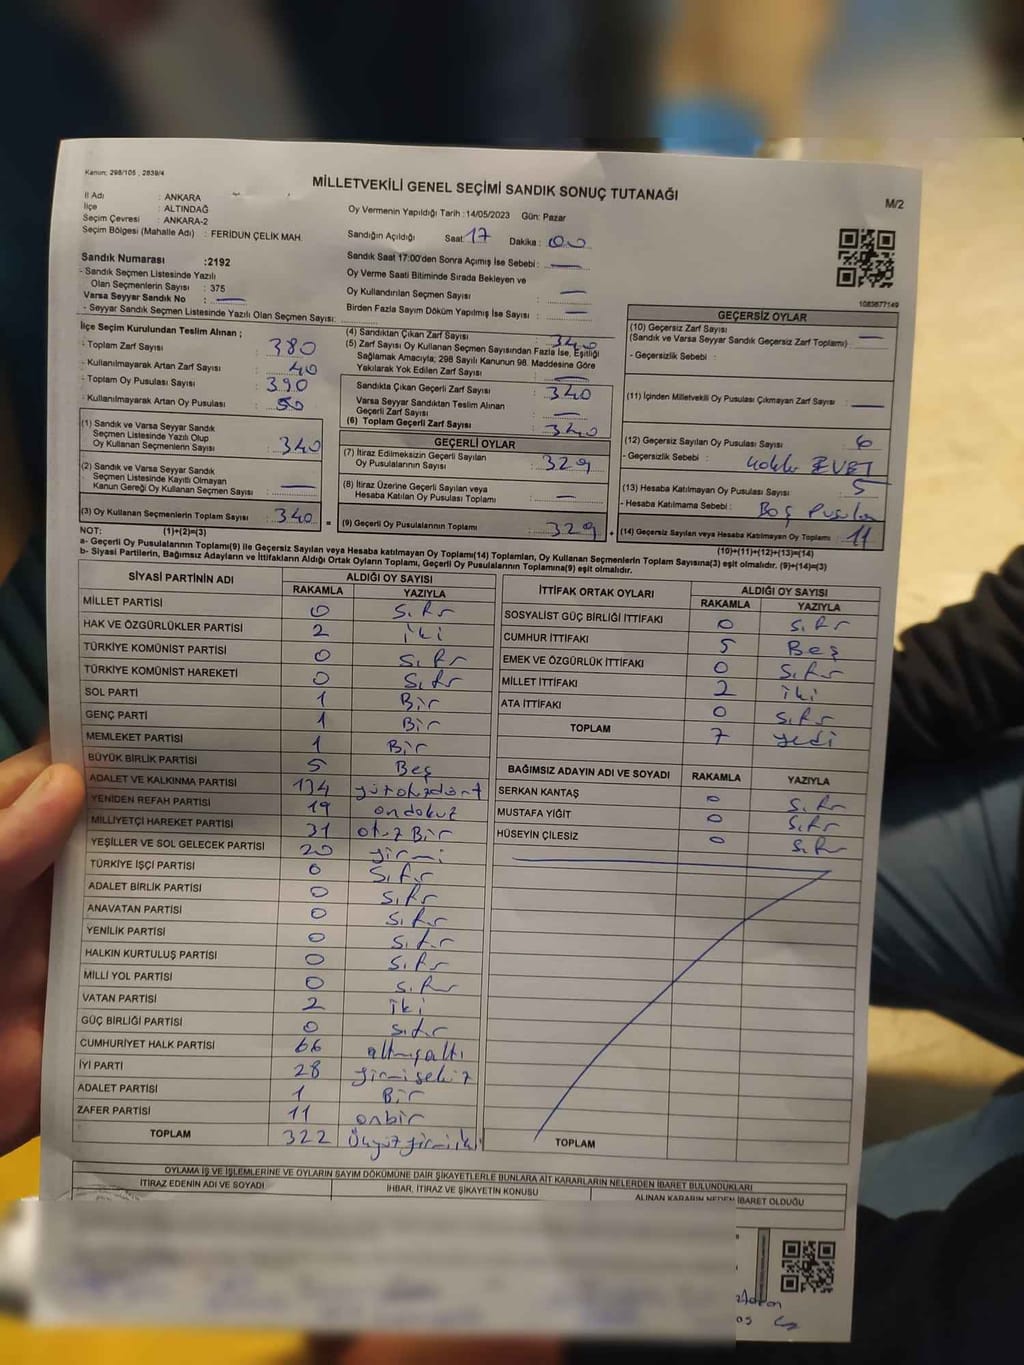 Kanun: 298/105 , 2839/4
MİLLETVEKİLİ GENEL SEÇİMİ SANDIK SONUÇ TUTANAĞI
M/2
İl Adı : ANKARA
İlçe : ALTINDAĞ
Seçim Çevresi : ANKARA-2
Seçim Bölgesi (Mahalle Adı) : FERİDUN ÇELİK MAH.
Sandık Numarası :2192
- Sandık Seçmen Listesinde Yazılı
Olan Seçmenlerin Sayısı : 375
Varsa Seyyar Sandık No : —
- Seyyar Sandık Seçmen Listesinde Yazılı Olan Seçmen Sayısı:
Oy Vermenin Yapıldığı Tarih :14/05/2023 Gün: Pazar
Sandığın Açıldığı Saat: 17 Dakika : 00
Sandık Saat 17:00'den Sonra Açımış İse Sebebi : —
Oy Verme Saati Bitiminde Sırada Bekleyen ve
Oy Kullandırılan Seçmen Sayısı : —
Birden Fazla Sayım Döküm Yapılmış İse Sayısı : —
1083877149
İlçe Seçim Kurulundan Teslim Alınan ;
- Toplam Zarf Sayısı : 380
- Kullanılmayarak Artan Zarf Sayısı : 40
- Toplam Oy Pusulası Sayısı : 390
- Kullanılmayarak Artan Oy Pusulası : 50
(1) Sandık ve Varsa Seyyar Sandık
Seçmen Listesinde Yazılı Olup
Oy Kullanan Seçmenlerin Sayısı : 340
(2) Sandık ve Varsa Seyyar Sandık
Seçmen Listesinde Kayıtlı Olmayan
Kanun Gereği Oy Kullanan Seçmen Sayısı : —
(3) Oy Kullanan Seçmenlerin Toplam Sayısı : 340
(1)+(2)=(3)
(4) Sandıktan Çıkan Zarf Sayısı : 340
(5) Zarf Sayısı Oy Kullanan Seçmen Sayısından Fazla İse, Eşitliği
Sağlamak Amacıyla; 298 Sayılı Kanunun 98. Maddesine Göre
Yakılarak Yok Edilen Zarf Sayısı : —
Sandıkta Çıkan Geçerli Zarf Sayısı : 340
Varsa Seyyar Sandıktan Teslim Alınan
Geçerli Zarf Sayısı : —
(6) Toplam Geçerli Zarf Sayısı : 340
GEÇERLİ OYLAR
(7) İtiraz Edilmeksizin Geçerli Sayılan
Oy Pusulalarının Sayısı : 329
(8) İtiraz Üzerine Geçerli Sayılan veya
Hesaba Katılan Oy Pusulası Toplamı : —
= (9) Geçerli Oy Pusulalarının Toplamı : 329
GEÇERSİZ OYLAR
(10) Geçersiz Zarf Sayısı
(Sandık ve Varsa Seyyar Sandık Geçersiz Zarf Toplamı) : —
- Geçersizlik Sebebi :
(11) İçinden Milletvekili Oy Pusulası Çıkmayan Zarf Sayısı : —
(12) Geçersiz Sayılan Oy Pusulası Sayısı : 6
- Geçersizlik Sebebi : EVET
(13) Hesaba Katılmayan Oy Pusulası Sayısı : 5
- Hesaba Katılmama Sebebi : Boş Pusula
+ (14) Geçersiz Sayılan veya Hesaba Katılmayan Oy Toplamı : 11
(10)+(11)+(12)+(13)=(14)
NOT:
a- Geçerli Oy Pusulalarının Toplamı(9) ile Geçersiz Sayılan veya Hesaba katılmayan Oy Toplamı(14) Toplamları, Oy Kullanan Seçmenlerin Toplam Sayısına(3) eşit olmalıdır. (9)+(14)=(3)
b- Siyasi Partilerin, Bağımsız Adayların ve İttifakların Aldığı Ortak Oyların Toplamı, Geçerli Oy Pusulalarının Toplamına(9) eşit olmalıdır.
SİYASİ PARTİNİN ADI ALDIĞI OY SAYISI
RAKAMLA YAZIYLA
MİLLET PARTİSİ 0 Sıfır
HAK VE ÖZGÜRLÜKLER PARTİSİ 2 iki
TÜRKİYE KOMÜNİST PARTİSİ 0 Sıfır
TÜRKİYE KOMÜNİST HAREKETİ 0 Sıfır
SOL PARTİ 1 Bir
GENÇ PARTİ 1 Bir
MEMLEKET PARTİSİ 1 Bir
BÜYÜK BİRLİK PARTİSİ 5 Beş
ADALET VE KALKINMA PARTİSİ 134 yüzotuzdört
YENİDEN REFAH PARTİSİ 19 ondokuz
MİLLİYETÇİ HAREKET PARTİSİ 31 otuz Bir
YEŞİLLER VE SOL GELECEK PARTİSİ 20 yirmi
TÜRKİYE İŞÇİ PARTİSİ 0 Sıfır
ADALET BİRLİK PARTİSİ 0 Sıfır
ANAVATAN PARTİSİ 0 Sıfır
YENİLİK PARTİSİ 0 Sıfır
HALKIN KURTULUŞ PARTİSİ 0 Sıfır
MİLLİ YOL PARTİSİ 0 Sıfır
VATAN PARTİSİ 2 iki
GÜÇ BİRLİĞİ PARTİSİ 0 Sıfır
CUMHURİYET HALK PARTİSİ 66 altmışaltı
İYİ PARTİ 28 yirmisekiz
ADALET PARTİSİ 1 Bir
ZAFER PARTİSİ 11 onbir
TOPLAM 322 Üçyüzyirmiiki
İTTİFAK ORTAK OYLARI ALDIĞI OY SAYISI
RAKAMLA YAZIYLA
SOSYALIST GÜÇ BİRLİĞİ İTTİFAKI 0 Sıfır
CUMHUR İTTİFAKI 5 Beş
EMEK VE ÖZGÜRLÜK İTTİFAKI 0 Sıfır
MİLLET İTTİFAKI 2 iki
ATA İTTİFAKI 0 Sıfır
TOPLAM 7 yedi
BAĞIMSIZ ADAYIN ADI VE SOYADI RAKAMLA YAZIYLA
SERKAN KANTAŞ 0 Sıfır
MUSTAFA YİĞİT 0 Sıfır
HÜSEYİN ÇİLESİZ 0 Sıfır
TOPLAM
OYLAMA İŞ VE İŞLEMLERİNE VE OYLARIN SAYIM DÖKÜMÜNE DAİR ŞİKAYETLERLE BUNLARA AİT KARARLARIN NELERDEN İBARET BULUNDUKLARI
İTİRAZ EDENİN ADI VE SOYADI İHBAR, İTİRAZ VE ŞİKAYETİN KONUSU ALINAN KARARIN NEDEN İBARET OLDUĞU